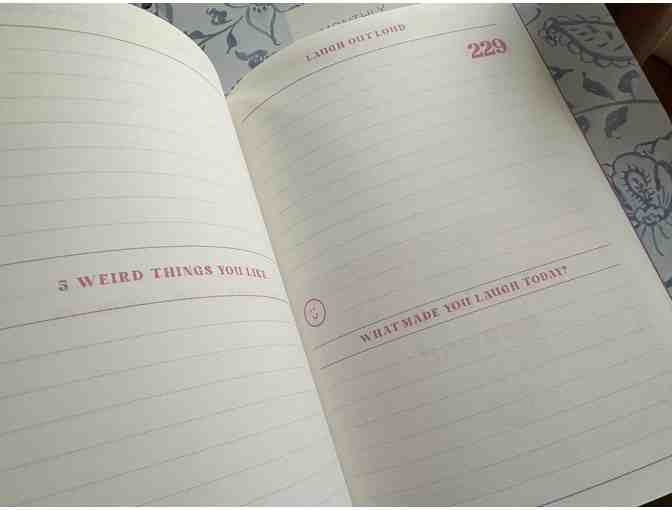 MONTHLY
5 WEIRD THINGS YOU LIKE
LAUGH OUT LOUD
229
WHAT MADE YOU LAUGH TODAY?